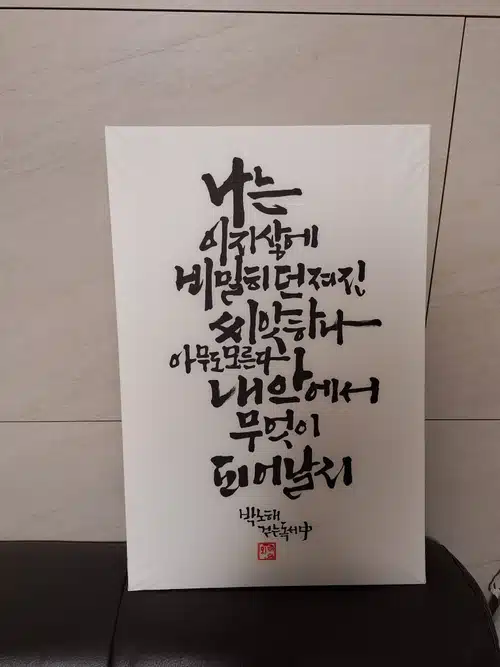 나는
이 지상에
비밀히 던져진
씨앗 하나
아무도 모른다
내 안에서
무엇이
피어날지
박노해
걷는 독서 中